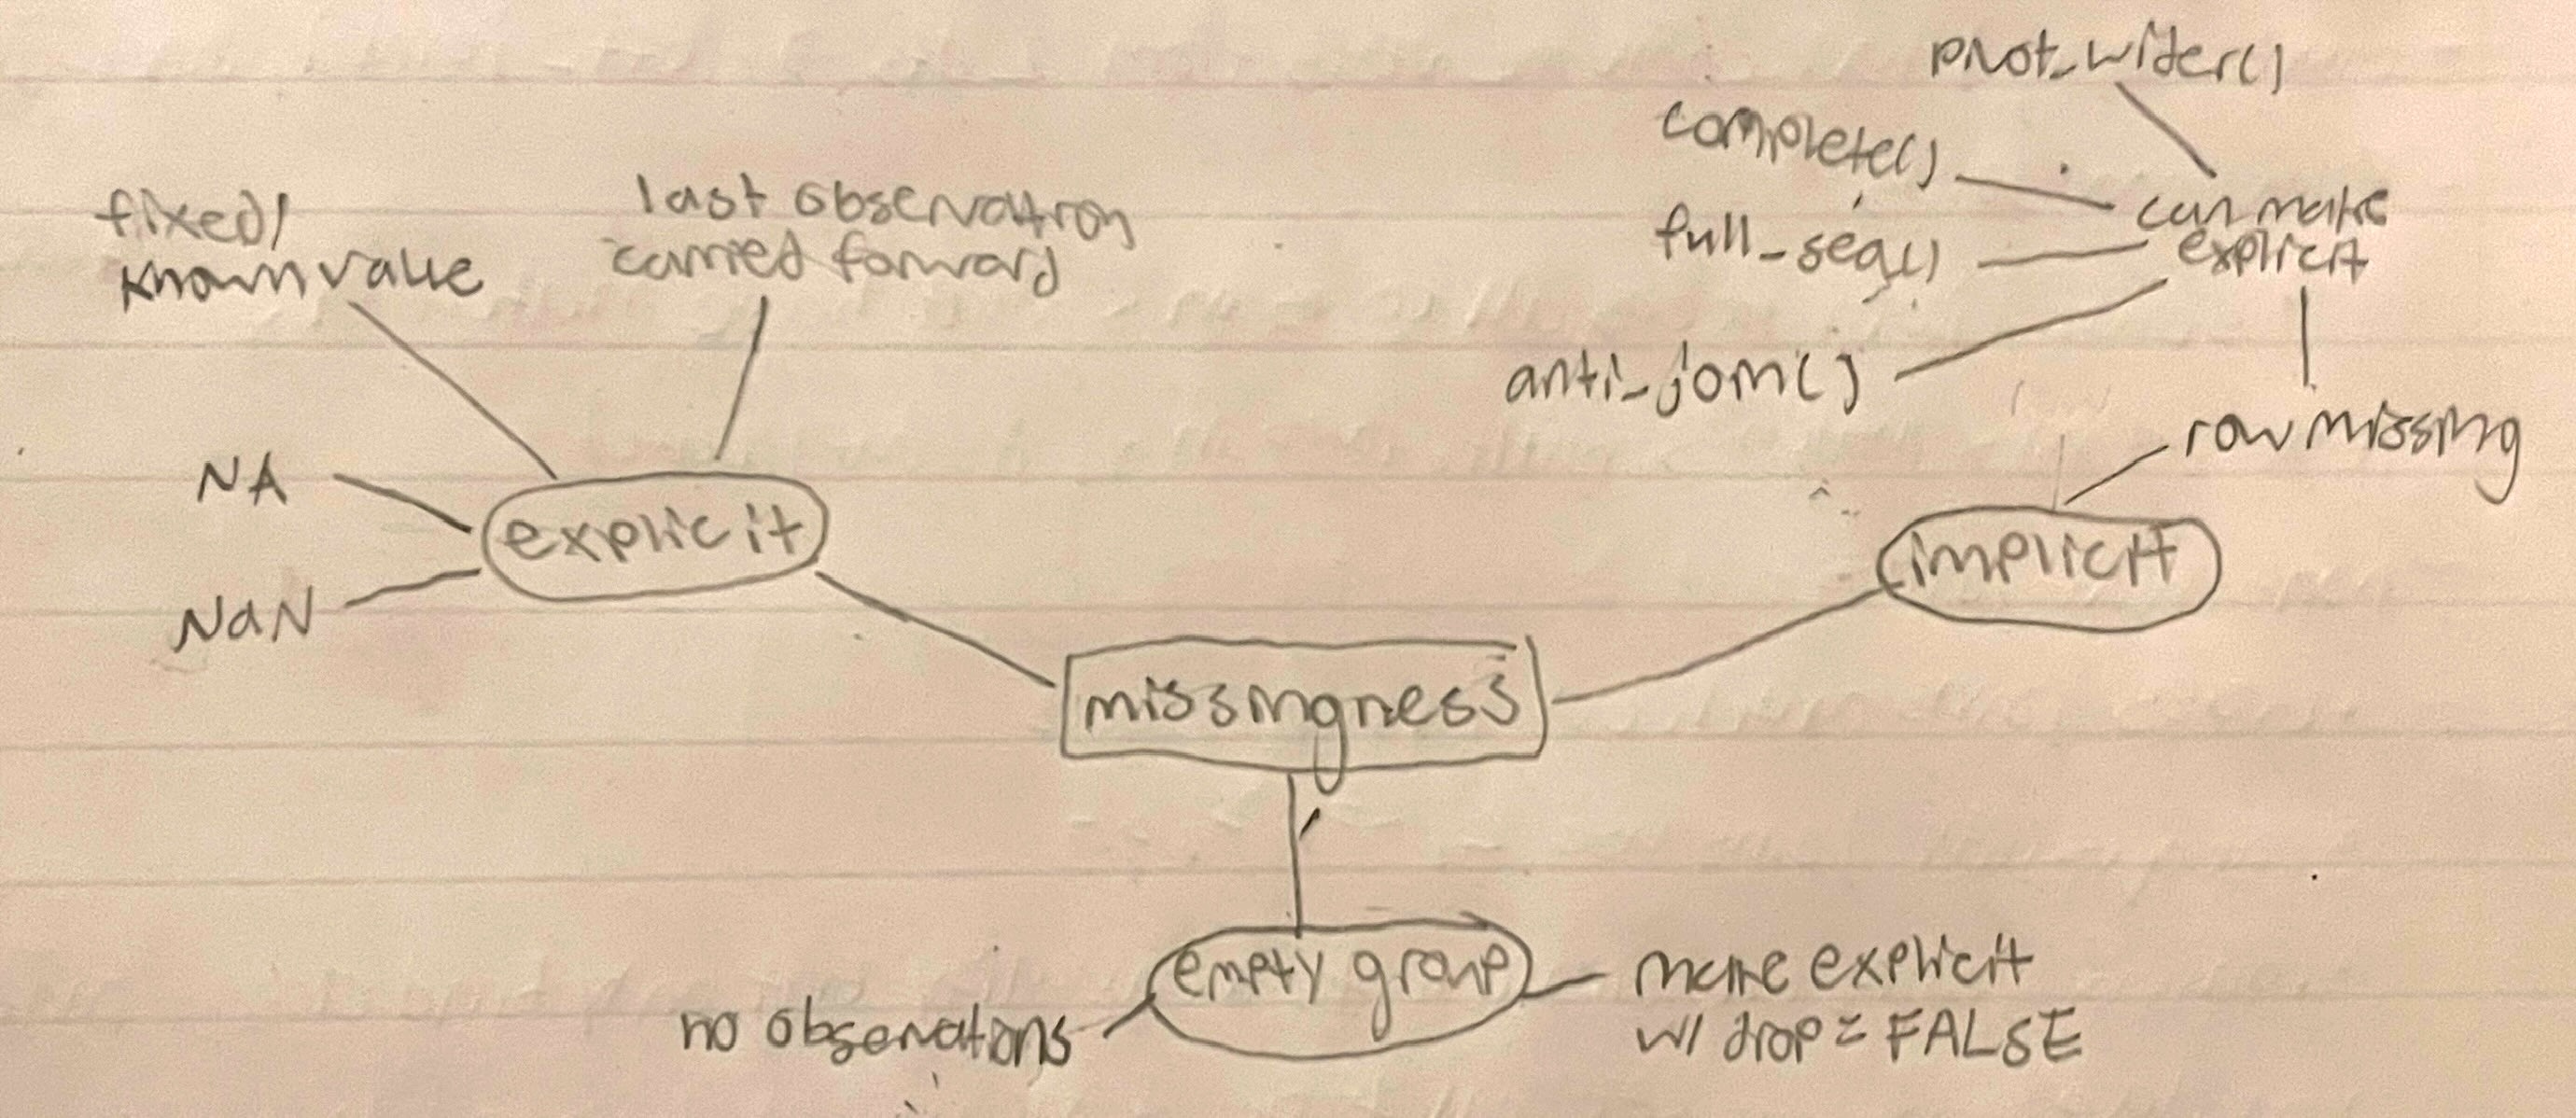 pivot_wider()
complete()
can make
explicit
full_seq()
anti_join()
row missing
fixed/
known value
last observation
carried forward
NA
NaN
explicit
implicit
missingness
empty group
no observations
make explicit
w/ drop = FALSE